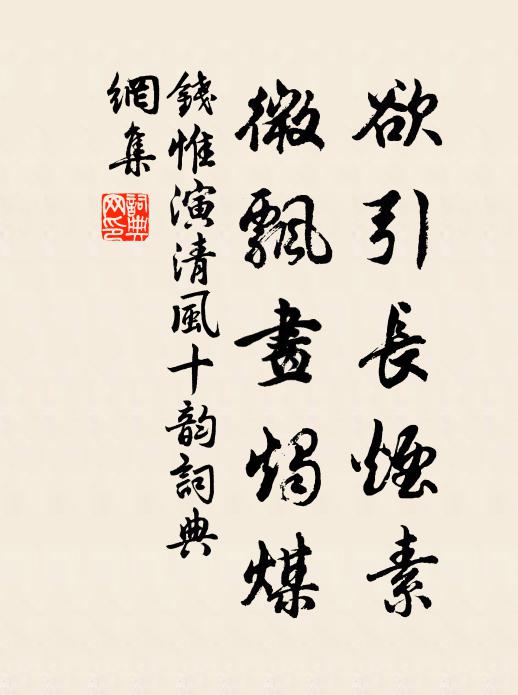 欲引長煙素
微飄畫燭煤
錢惟演清風十韵詞典
網集
詞典
网印